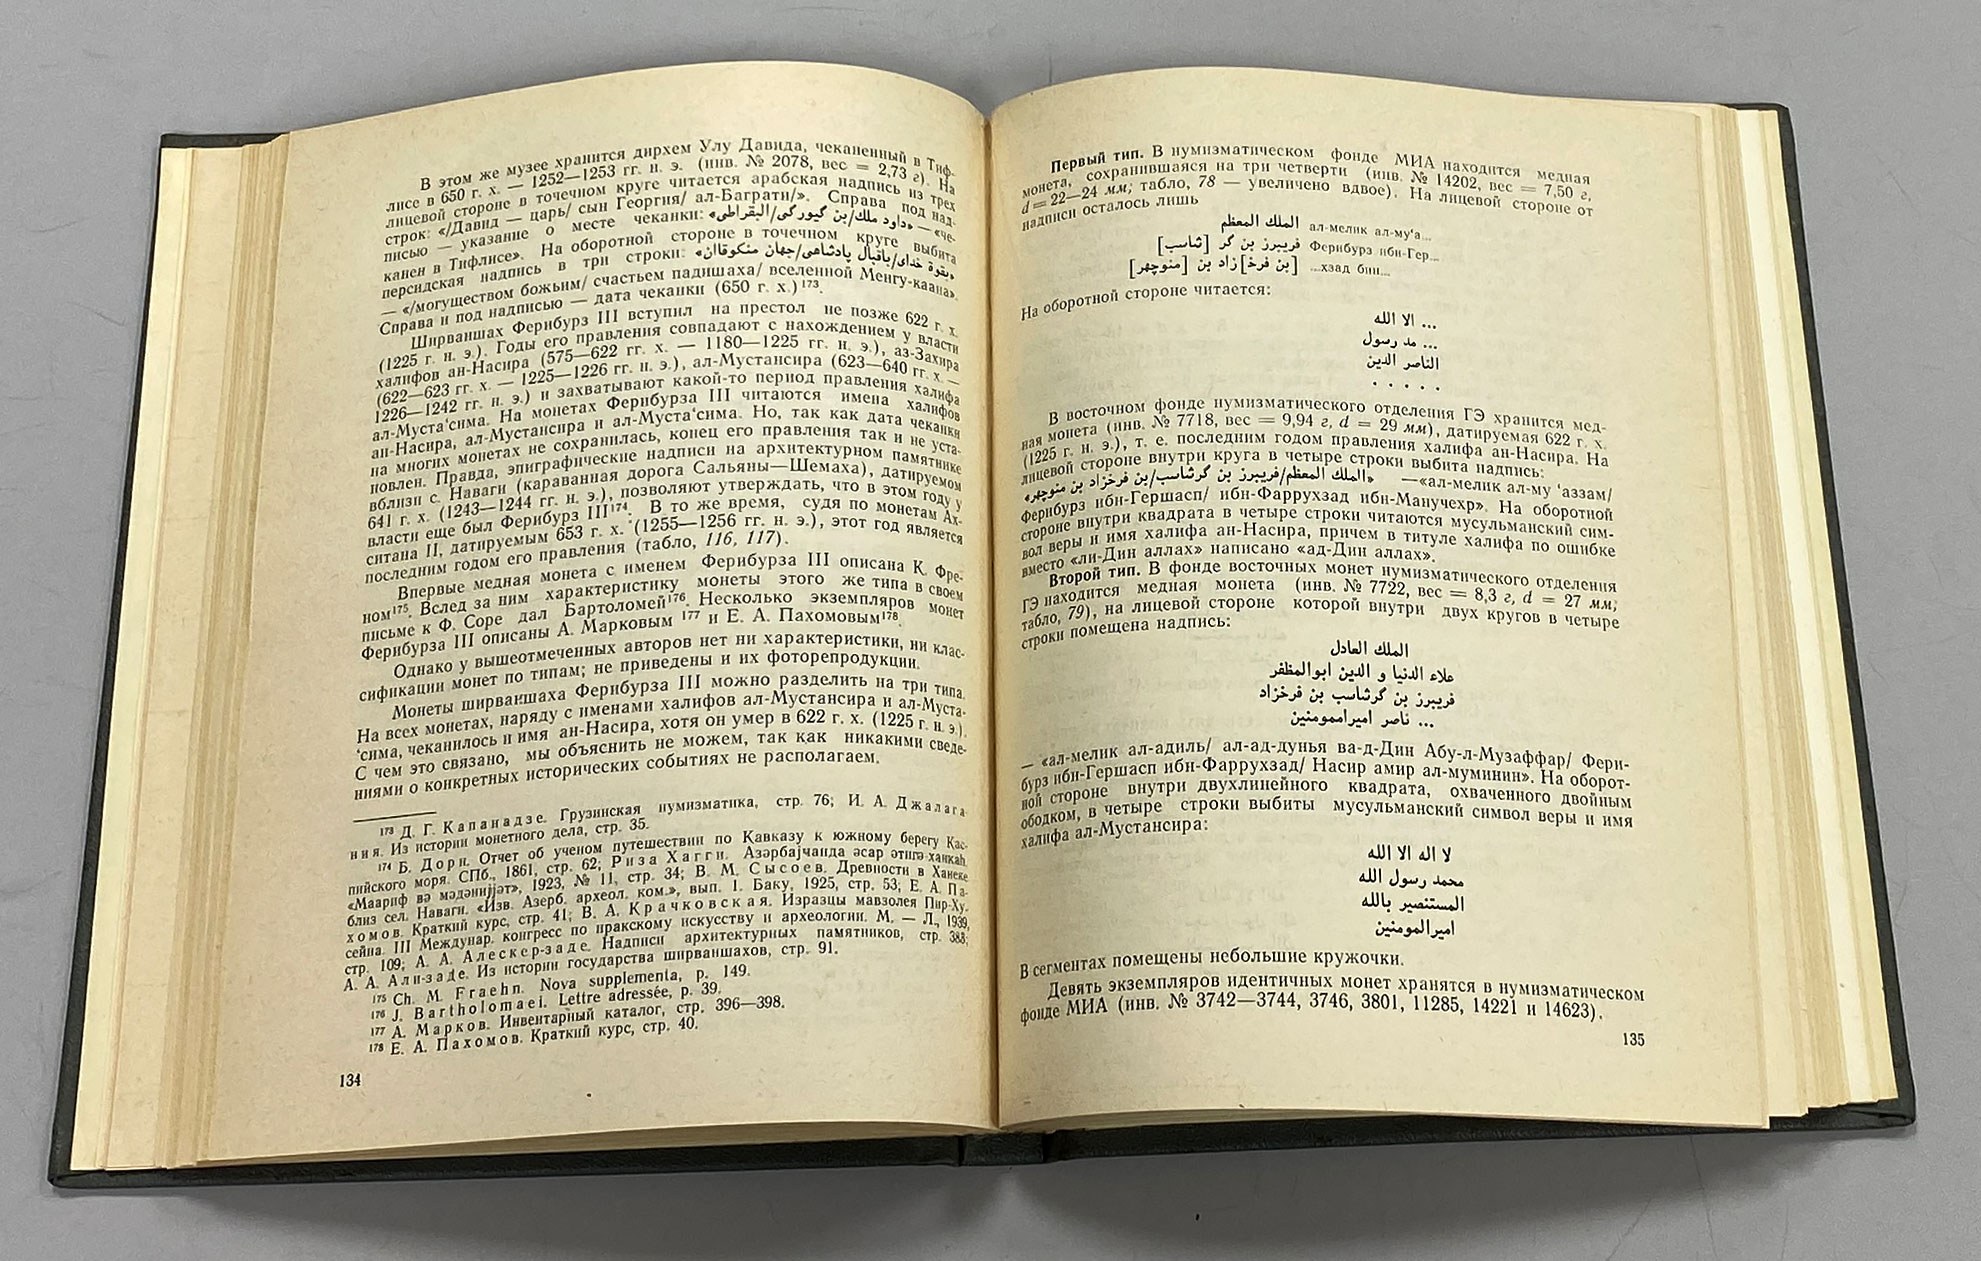 В этом же музее хранится дирхем Улу Давида, чеканенный в Тиф-
лисе в 650 г. х. — 1252—1253 гг. н. э. (инв. № 2078, вес = 2,73 г). На
лицевой стороне в точечном круге читается арабская надпись из трех
строк: «/Давид — царь/ сын Георгия/ ал-Баграти/». Справа под над-
писью — указание о месте чеканки: «داود ملك/بن گيورگى/البقراطى» — «че-
канен в Тифлисе». На оборотной стороне в точечном круге выбита
персидская надпись в три строки: «بقوة خداى/باقبال پادشاهى/جهان منكوقاان»
— «/могуществом божьим/ счастьем падишаха/ вселенной Менгу-каана».
Справа и под надписью — дата чеканки (650 г. х.)¹⁷³.
Ширваншах Ферибурз III вступил на престол не позже 622 г. х.
(1225 г. н. э.). Годы его правления совпадают с нахождением у власти
халифов ан-Насира (575—622 гг. х. — 1180—1225 гг. н. э.), аз-Захира
(622—623 гг. х. — 1225—1226 гг. н. э.), ал-Мустансира (623—640 гг. х. —
1226—1242 гг. н. э.) и захватывают какой-то период правления халифа
ал-Муста‘сима. На монетах Ферибурза III читаются имена халифов
ан-Насира, ал-Мустансира и ал-Муста‘сима. Но, так как дата чеканки
на многих монетах не сохранилась, конец его правления так и не уста-
новлен. Правда, эпиграфические надписи на архитектурном памятнике
вблизи с. Наваги (караванная дорога Сальяны—Шемаха), датируемом
641 г. х. (1243—1244 гг. н. э.), позволяют утверждать, что в этом году у
власти еще был Ферибурз III¹⁷⁴. В то же время, судя по монетам Ах-
ситана II, датируемым 653 г. х. (1255—1256 гг. н. э.), этот год является
последним годом его правления (табло, 116, 117).
Впервые медная монета с именем Ферибурза III описана К. Фре-
ном¹⁷⁵. Вслед за ним характеристику монеты этого же типа в своем
письме к Ф. Соре дал Бартоломей¹⁷⁶. Несколько экземпляров монет
Ферибурза III описаны А. Марковым ¹⁷⁷ и Е. А. Пахомовым¹⁷⁸.
Однако у вышеотмеченных авторов нет ни характеристики, ни клас-
сификации монет по типам; не приведены и их фоторепродукции.
Монеты ширваншаха Ферибурза III можно разделить на три типа.
На всех монетах, наряду с именами халифов ал-Мустансира и ал-Муста-
‘сима, чеканилось и имя ан-Насира, хотя он умер в 622 г. х. (1225 г. н. э.).
С чем это связано, мы объяснить не можем, так как никакими сведе-
ниями о конкретных исторических событиях не располагаем.
¹⁷³ Д. Г. Капанадзе. Грузинская нумизматика, стр. 76; И. А. Джалага-
ния. Из истории монетного дела, стр. 35.
¹⁷⁴ Б. Дорн. Отчет об ученом путешествии по Кавказу к южному берегу Кас-
пийского моря. СПб., 1861, стр. 62; Риза Хагги. Азәрбајчанда әсар әтигә ханкаһ.
«Маариф вә мәдәнијјәт», 1923, № 11, стр. 34; В. М. Сысоев. Древности в Ханеке
близ сел. Наваги. «Изв. Азерб. археол. ком.», вып. 1. Баку, 1925, стр. 53; Е. А. Па-
хомов. Краткий курс, стр. 41; В. А. Крачковская. Изразцы мавзолея Пир-Ху-
сейна. III Междунар. конгресс по иракскому искусству и археологии. М. — Л., 1939,
стр. 109; А. А. Алескер-заде. Надписи архитектурных памятников, стр. 388;
А. А. Али-заде. Из истории государства ширваншахов, стр. 91.
¹⁷⁵ Ch. M. Fraehn. Nova supplementa, p. 149.
¹⁷⁶ J. Bartholomaei. Lettre adressée, p. 39.
¹⁷⁷ А. Марков. Инвентарный каталог, стр. 396—398.
¹⁷⁸ Е. А. Пахомов. Краткий курс, стр. 40.
134
Первый тип. В нумизматическом фонде МИА находится медная
монета, сохранившаяся на три четверти (инв. № 14202, вес = 7,50 г,
d = 22—24 мм; табло, 78 — увеличено вдвое). На лицевой стороне от
надписи осталось лишь
الملك المعظم ал-мелик ал-му‘а...
فريبرز بن گر [شاسب] Ферибурз ибн-Гер...
[بن فرخ] زاد بن [منوچهر] ...хзад бин...
На оборотной стороне читается:
... الا الله
... مد رسول
الناصر الدين
. . . . .
В восточном фонде нумизматического отделения ГЭ хранится мед-
ная монета (инв. № 7718, вес = 9,94 г, d = 29 мм), датируемая 622 г. х.
(1225 г. н. э.), т. е. последним годом правления халифа ан-Насира. На
лицевой стороне внутри круга в четыре строки выбита надпись:
«الملك المعظم/فريبرز بن گرشاسب/بن فرخزاد بن منوچهر» —«ал-мелик ал-му ‘аззам/
Ферибурз ибн-Гершасп/ ибн-Фаррухзад ибн-Манучехр». На оборотной
стороне внутри квадрата в четыре строки читаются мусульманский сим-
вол веры и имя халифа ан-Насира, причем в титуле халифа по ошибке
вместо «ли-Дин аллах» написано «ад-Дин аллах».
Второй тип. В фонде восточных монет нумизматического отделения
ГЭ находится медная монета (инв. № 7722, вес = 8,3 г, d = 27 мм;
табло, 79), на лицевой стороне которой внутри двух кругов в четыре
строки помещена надпись:
الملك العادل
علاء الدنيا و الدين ابوالمظفر
فريبرز بن گرشاسب بن فرخزاد
... ناصر اميراممومنين
— «ал-мелик ал-адиль/ ал-ад-дунья ва-д-Дин Абу-л-Музаффар/ Фери-
бурз ибн-Гершасп ибн-Фаррухзад/ Насир амир ал-муминин». На оборот-
ной стороне внутри двухлинейного квадрата, охваченного двойным
ободком, в четыре строки выбиты мусульманский символ веры и имя
халифа ал-Мустансира:
لا اله الا الله
محمد رسول الله
المستنصير بالله
اميرالمومنين
В сегментах помещены небольшие кружочки.
Девять экземпляров идентичных монет хранятся в нумизматическом
фонде МИА (инв. № 3742—3744, 3746, 3801, 11285, 14221 и 14623).
135